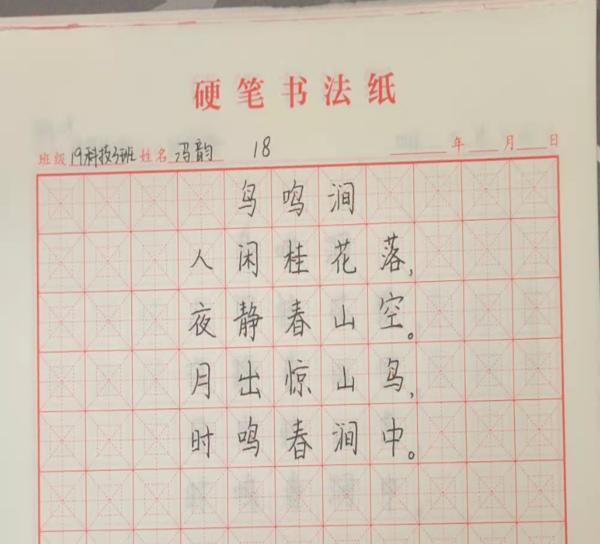 硬笔书法纸
班级 19科技3班 姓名 冯韵 18 年 月 日
鸟鸣涧
人闲桂花落,
夜静春山空。
月出惊山鸟,
时鸣春涧中。